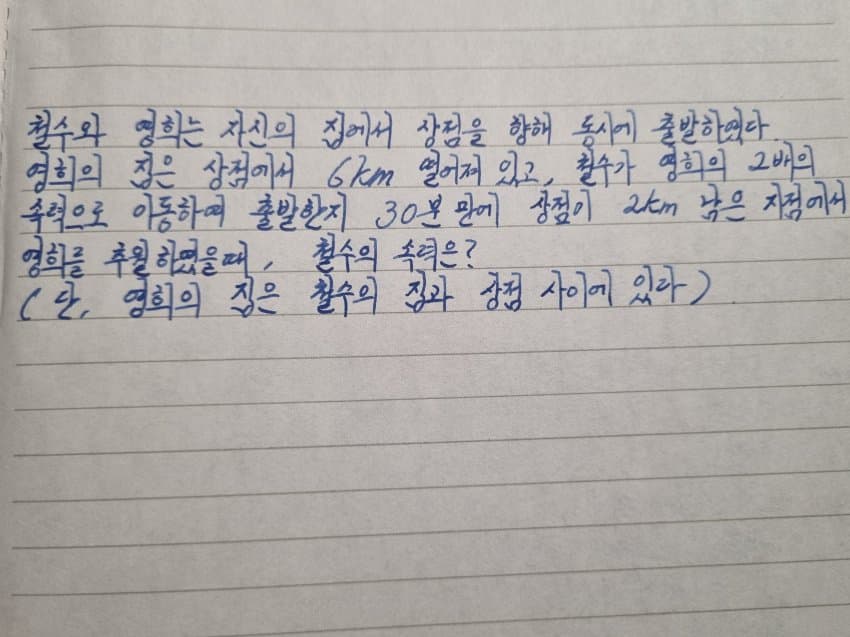 철수와 영희는 자신의 집에서 상점을 향해 동시에 출발하였다.
영희의 집은 상점에서 6km 떨어져 있고, 철수가 영희의 2배의
속력으로 이동하여 출발한지 30분 만에 상점이 2km 남은 지점에서
영희를 추월하였을때, 철수의 속력은?
(단, 영희의 집은 철수의 집과 상점 사이에 있다)